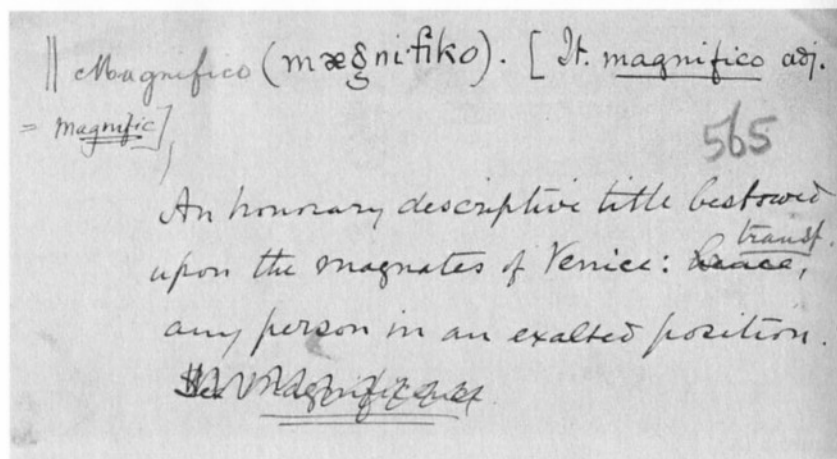 || Magnifico (mægnifiko). [It. magnifico adj.
= Magnific]
565
An honorary descriptive title bestowed
transf.
upon the magnates of Venice: hence,
any person in an exalted position.
See Magnificent